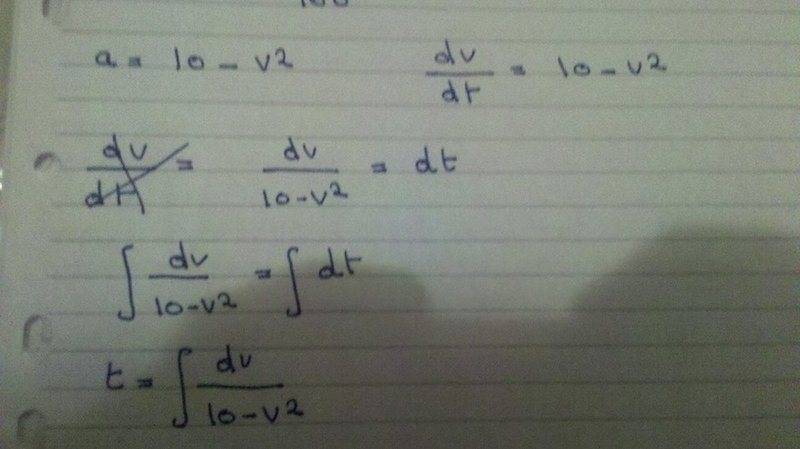 a = 10 - v2 dv/dt = 10 - v2
dv/dt = dv/10-v2 = dt
∫ dv/10-v2 = ∫ dt
t = ∫ dv/10-v2